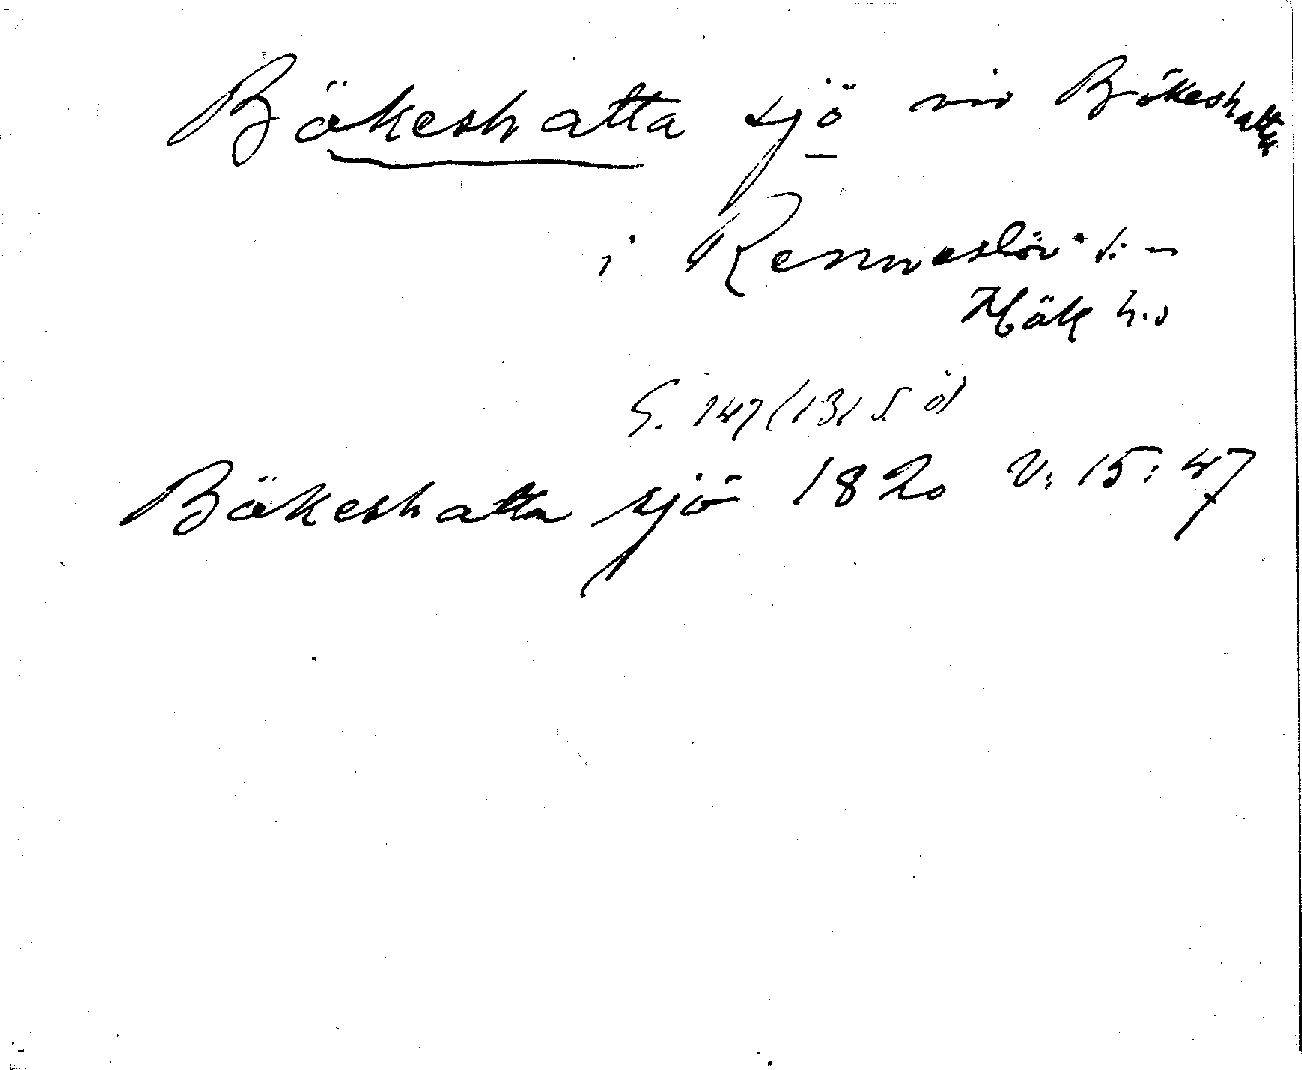 Bökeshatta sjö vid Bökeshatta
i Renneslöv s:n
Hök h:d
G. 147 (131 S ö)
Bökeshatta sjö 1820 V: 15: 47